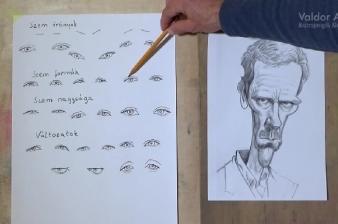 Szem irányok
Szem formák
Szem nagysága
Változatok
Valdor